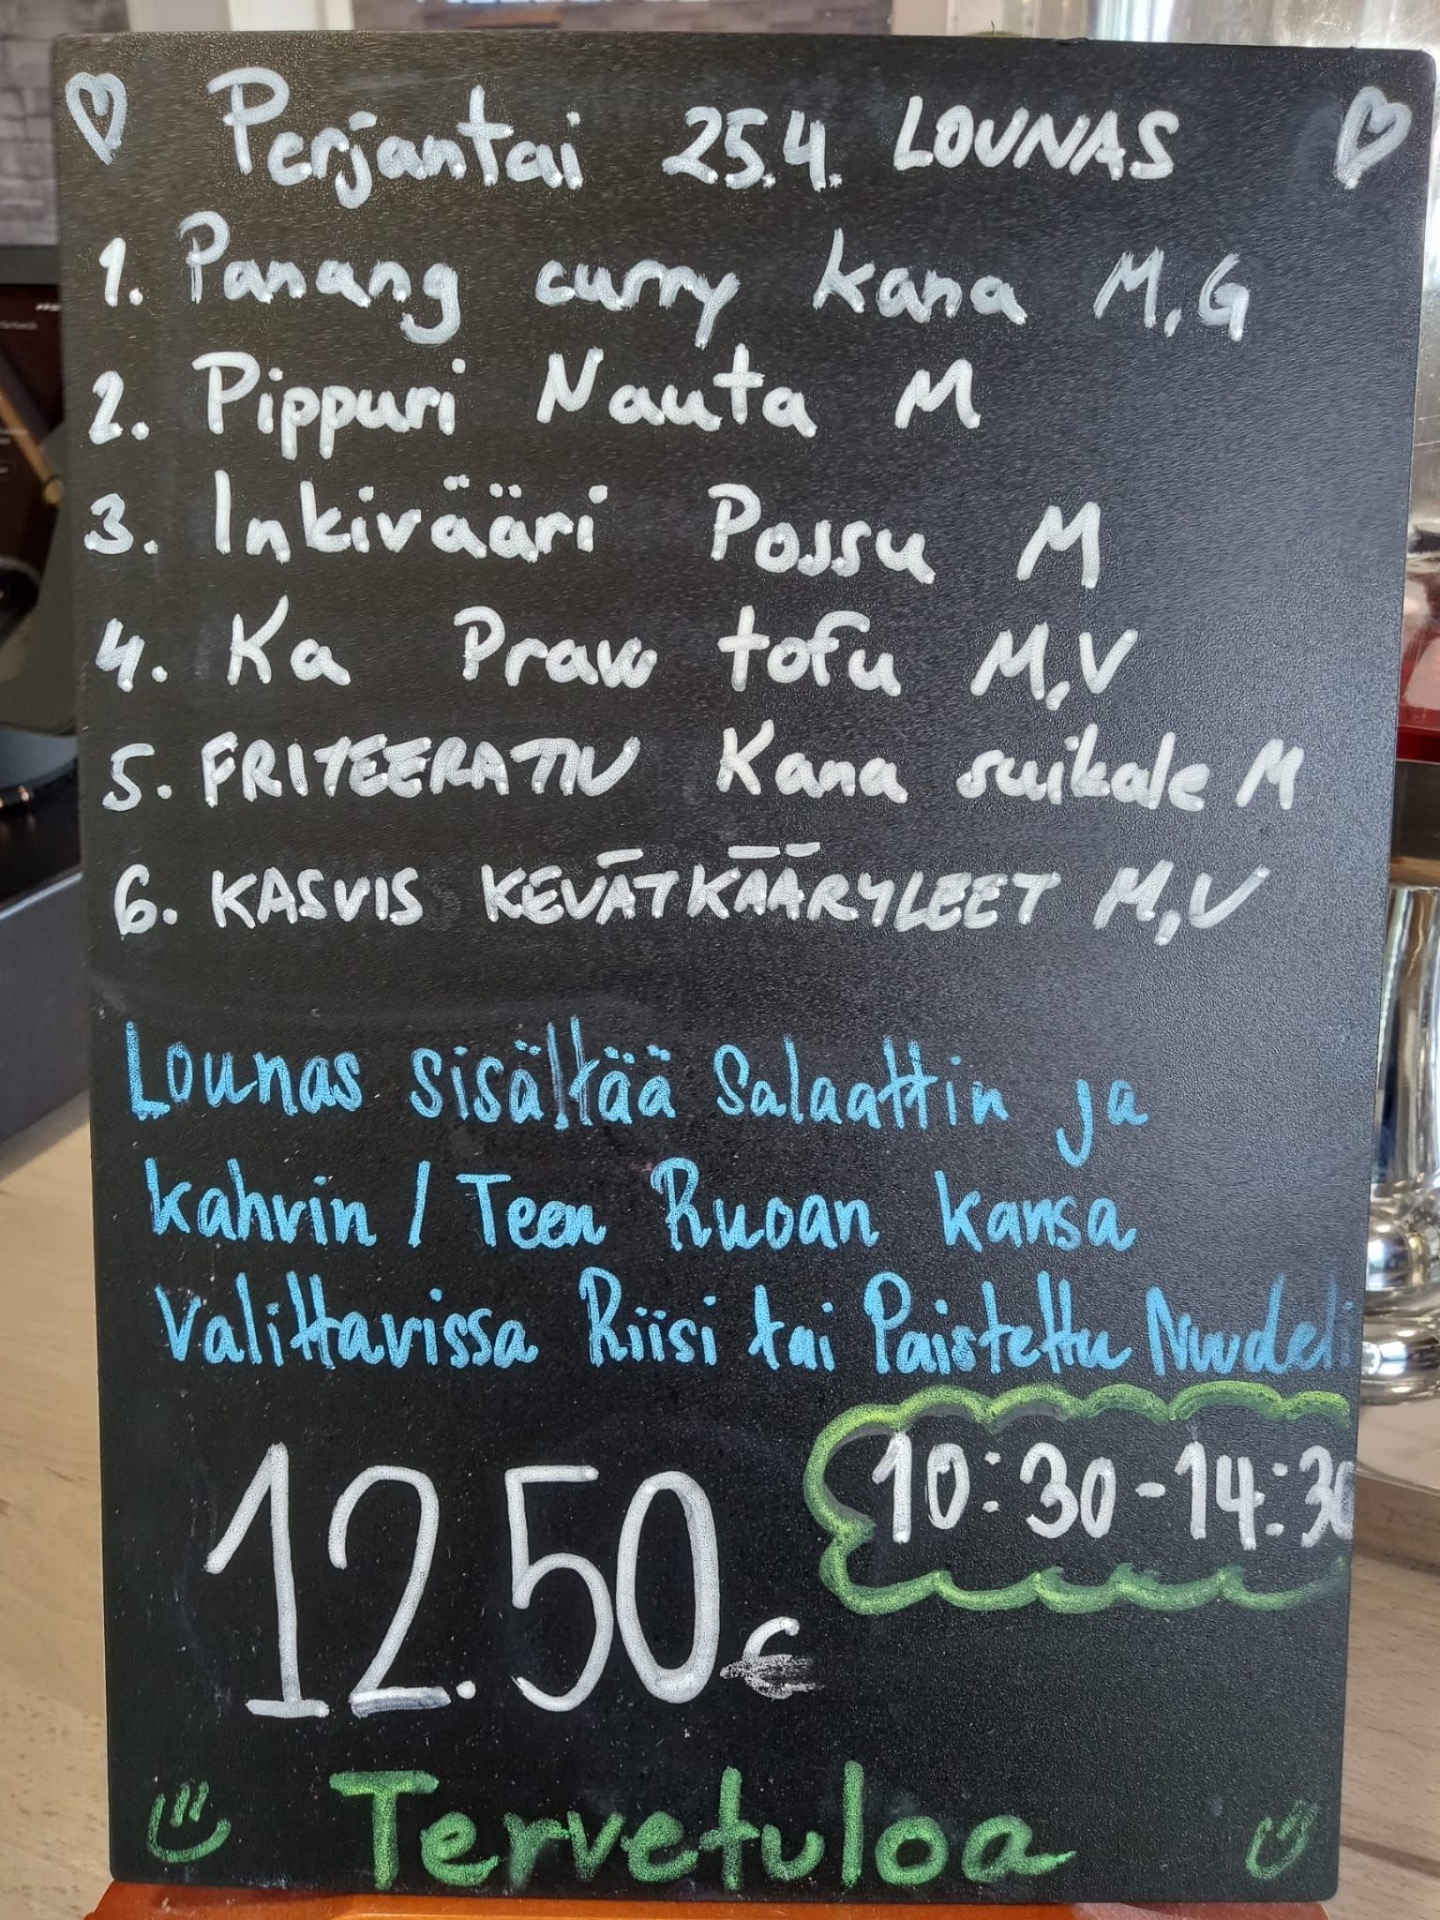 Perjantai 25.4. LOUNAS
1. Panang curry kana M,G
2. Pippuri Nauta M
3. Inkivääri Possu M
4. Ka Praw tofu M,V
5. FRITEERATTU Kana suikale M
6. KASVIS KEVÄTKÄÄRYLEET M,V
Lounas sisältää Salaattin ja
kahvin / Teen Ruoan kansa
Valittavissa Riisi tai Paistettu Nuudeli
10:30-14:30
12.50€
Tervetuloa